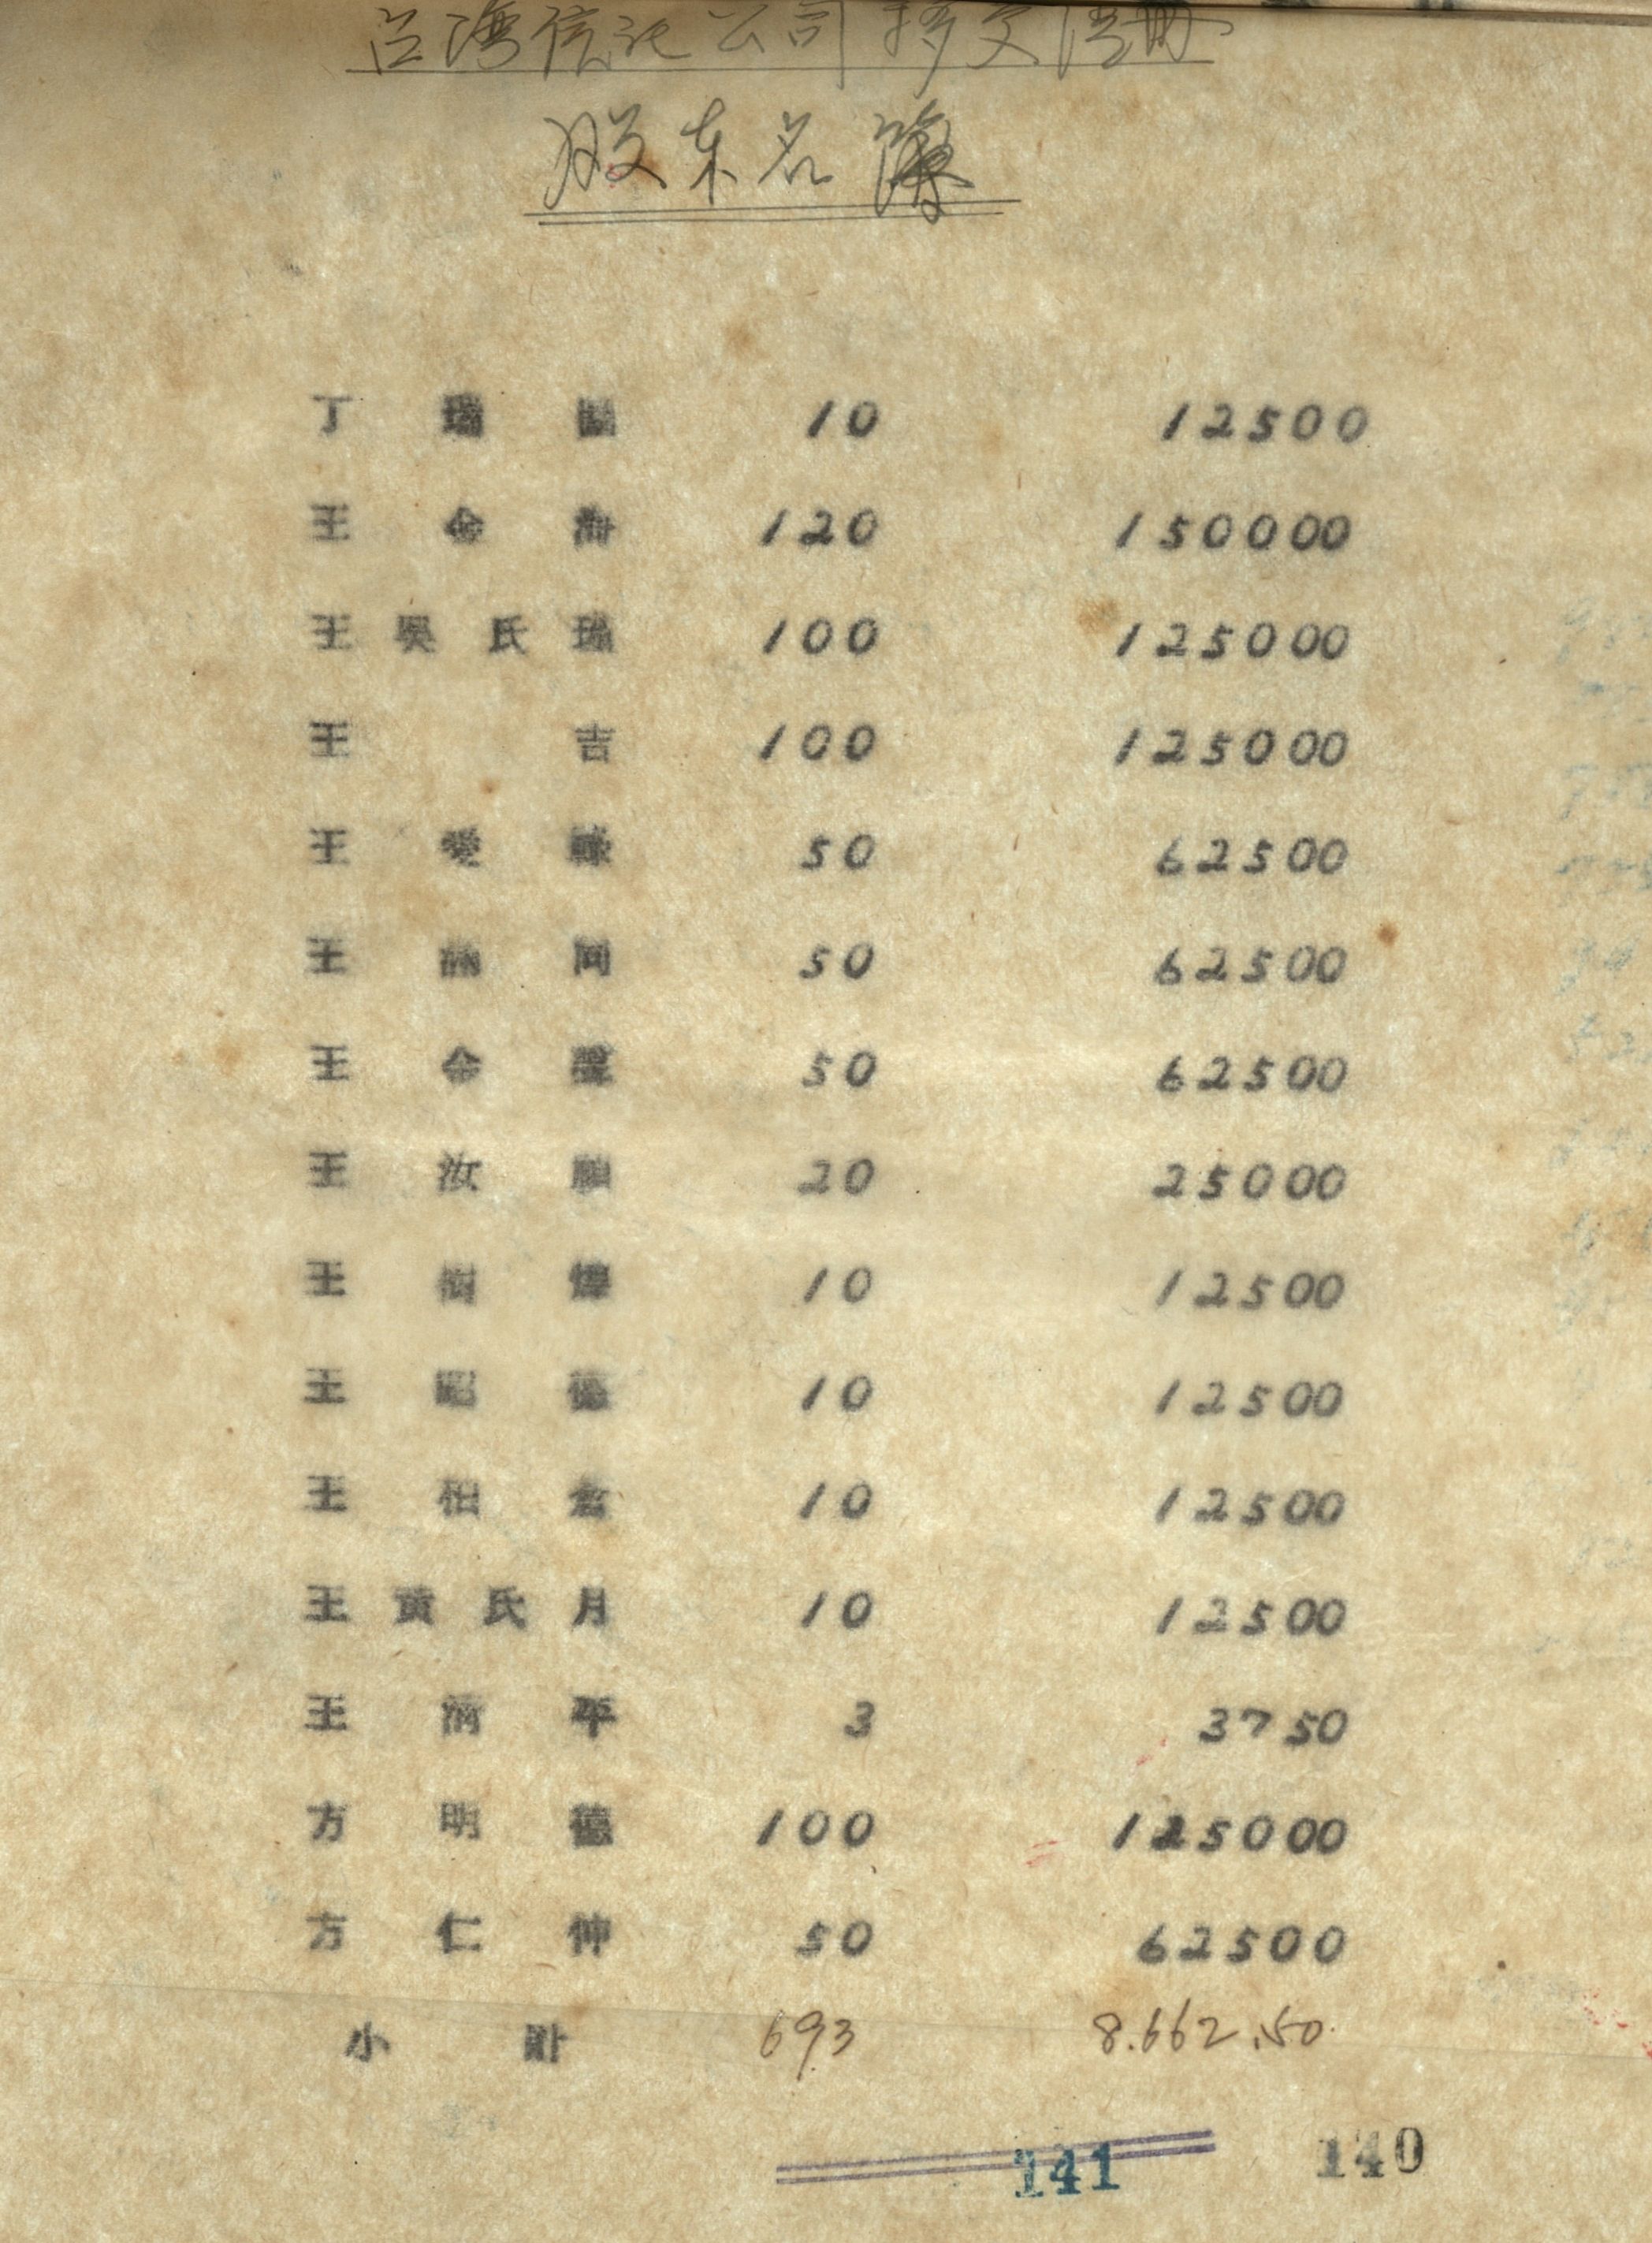 台灣信託公司移交清冊
股东名簿
丁瑞 10 12500
王金海 120 150000
王吳氏瑞 100 125000
王吉 100 125000
王愛 50 62500
王 50 62500
王金 50 62500
王汝 20 25000
王 10 12500
王昭德 10 12500
王 10 12500
王黃氏月 10 12500
王清平 3 3750
方明德 100 125000
方仁仲 50 62500
小計 693 8.662.50
141 140